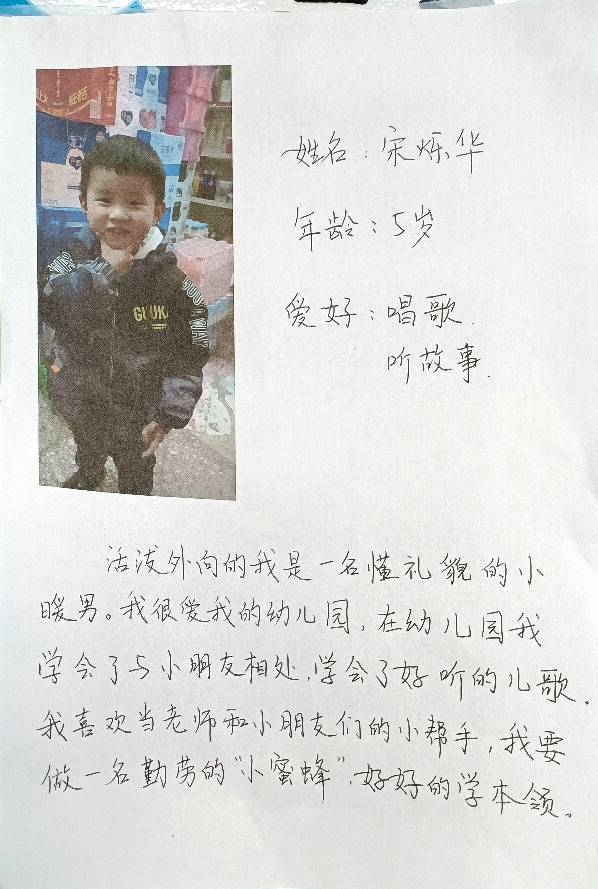 姓名：宋烁华
年龄：5岁
爱好：唱歌.
听故事.
GUUK
活泼外向的我是一名懂礼貌的小
暖男。我很爱我的幼儿园，在幼儿园我
学会了与小朋友相处，学会了好听的儿歌.
我喜欢当老师和小朋友们的小帮手，我要
做一名勤劳的“小蜜蜂”，好好的学本领。